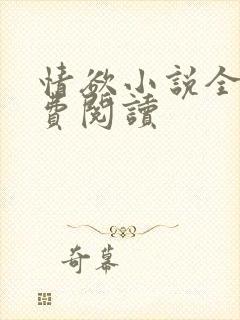 情欲小說全
費閱讀
奇幕